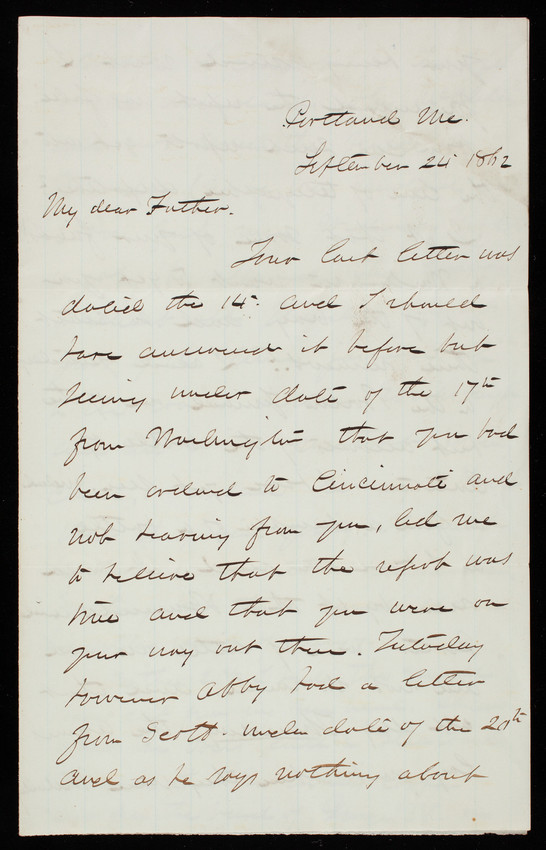 Portland Me.
September 24 1862
My dear Father.
Your last letter was
dated the 14th and I should
have answered it before but
seeing under date of the 17th
from Washington that you had
been ordered to Cincinnati and
not hearing from you, led me
to believe that the report was
true and that you were on
your way out there. Tuesday
however Abby had a letter
from Scott under date of the 20th
and as he says nothing about